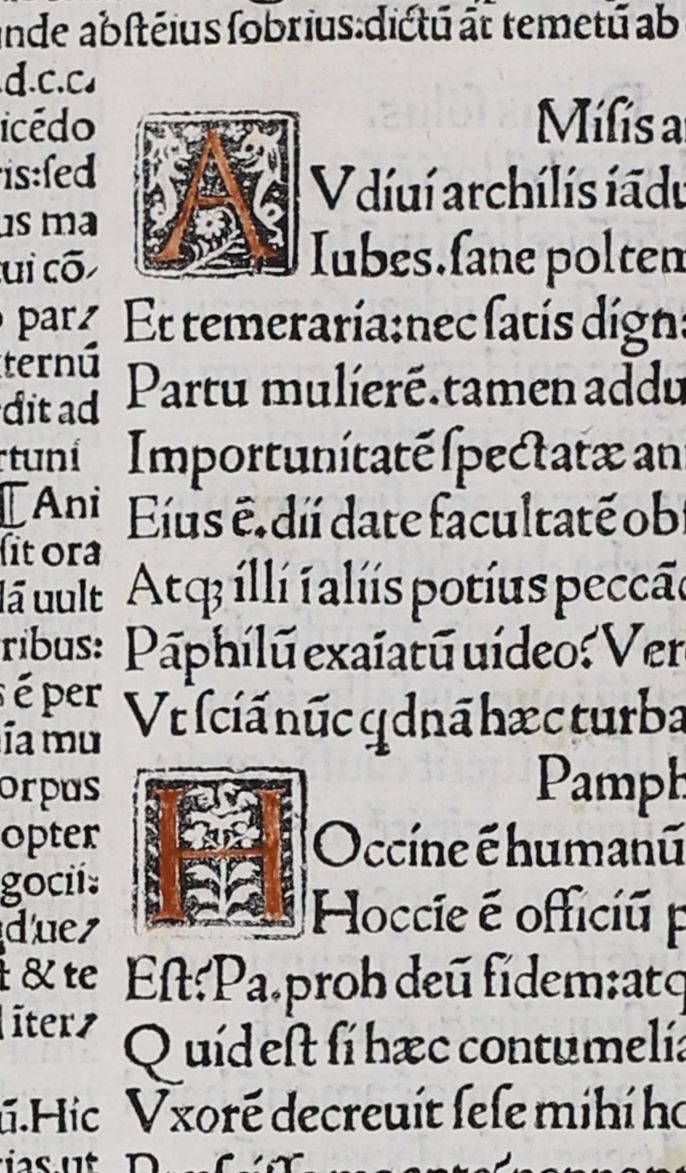 unde abstēius sobrius:dictū āt temetū ab
.d.c.c.
icēdo
ris:sed
us ma
cui cō-
par-
ternū
dit ad
rtuni
¶ Ani
sit ora
lā uult
ribus:
s ē per
nīa mu
orpus
opter
gocii:
ad'ue-
& te
līter-
ū.Hic
ias.ut
Misis a
A Vdiui archilis iādu
Iubes.sane pol tem
Et temeraria:nec satis dign
Partu mulierē.tamen addu
Importunitatē spectatæ an
Eius ē.dii date facultatē obs
Atqꝫ illi ī aliis potius peccād
Pāphilū exaīatū uideo? Ver
Vt sciā nūc ꝗdnā hæc turba
Pamph
H Occine ē humanū
Hoccīe ē officiū p
Est? Pa.proh deū fidem:atq
Quid est si hæc contumelia
Vxorē decreuit sese mihi ho